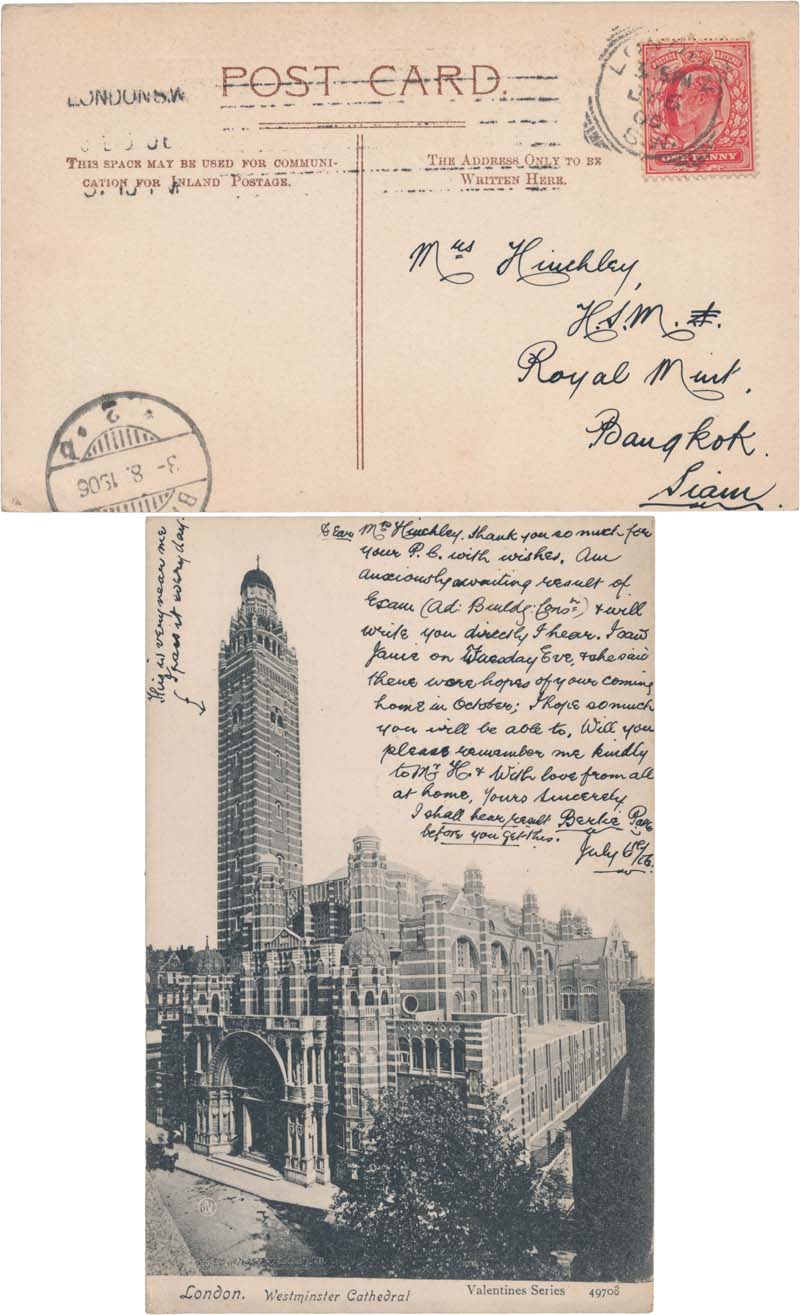 POST CARD.
LONDON S.W
THIS SPACE MAY BE USED FOR COMMUNI-
CATION FOR INLAND POSTAGE.
THE ADDRESS ONLY TO BE
WRITTEN HERE.
LONDON
POSTAGE REVENUE
ONE PENNY
Mrs Hinchley,
H.S.M.
Royal Mint,
Bangkok.
Siam.
2
3-8.1906
B
This is very near me
I pass it every day.
Dear Mrs Hinchley. Thank you so much for
your P.C. with wishes. Am
anxiously awaiting result of
Exam (Ad: Buildg: Consn) & will
write you directly I hear. I saw
Janie on Tuesday Eve, & she said
there were hopes of your coming
home in October; I hope so much
you will be able to. Will you
please remember me kindly
to Mr H. & With love from all
at home, Yours Sincerely
I shall hear result Bertie
before you get this.
July 6th/06.
London. Westminster Cathedral
Valentines Series 49708